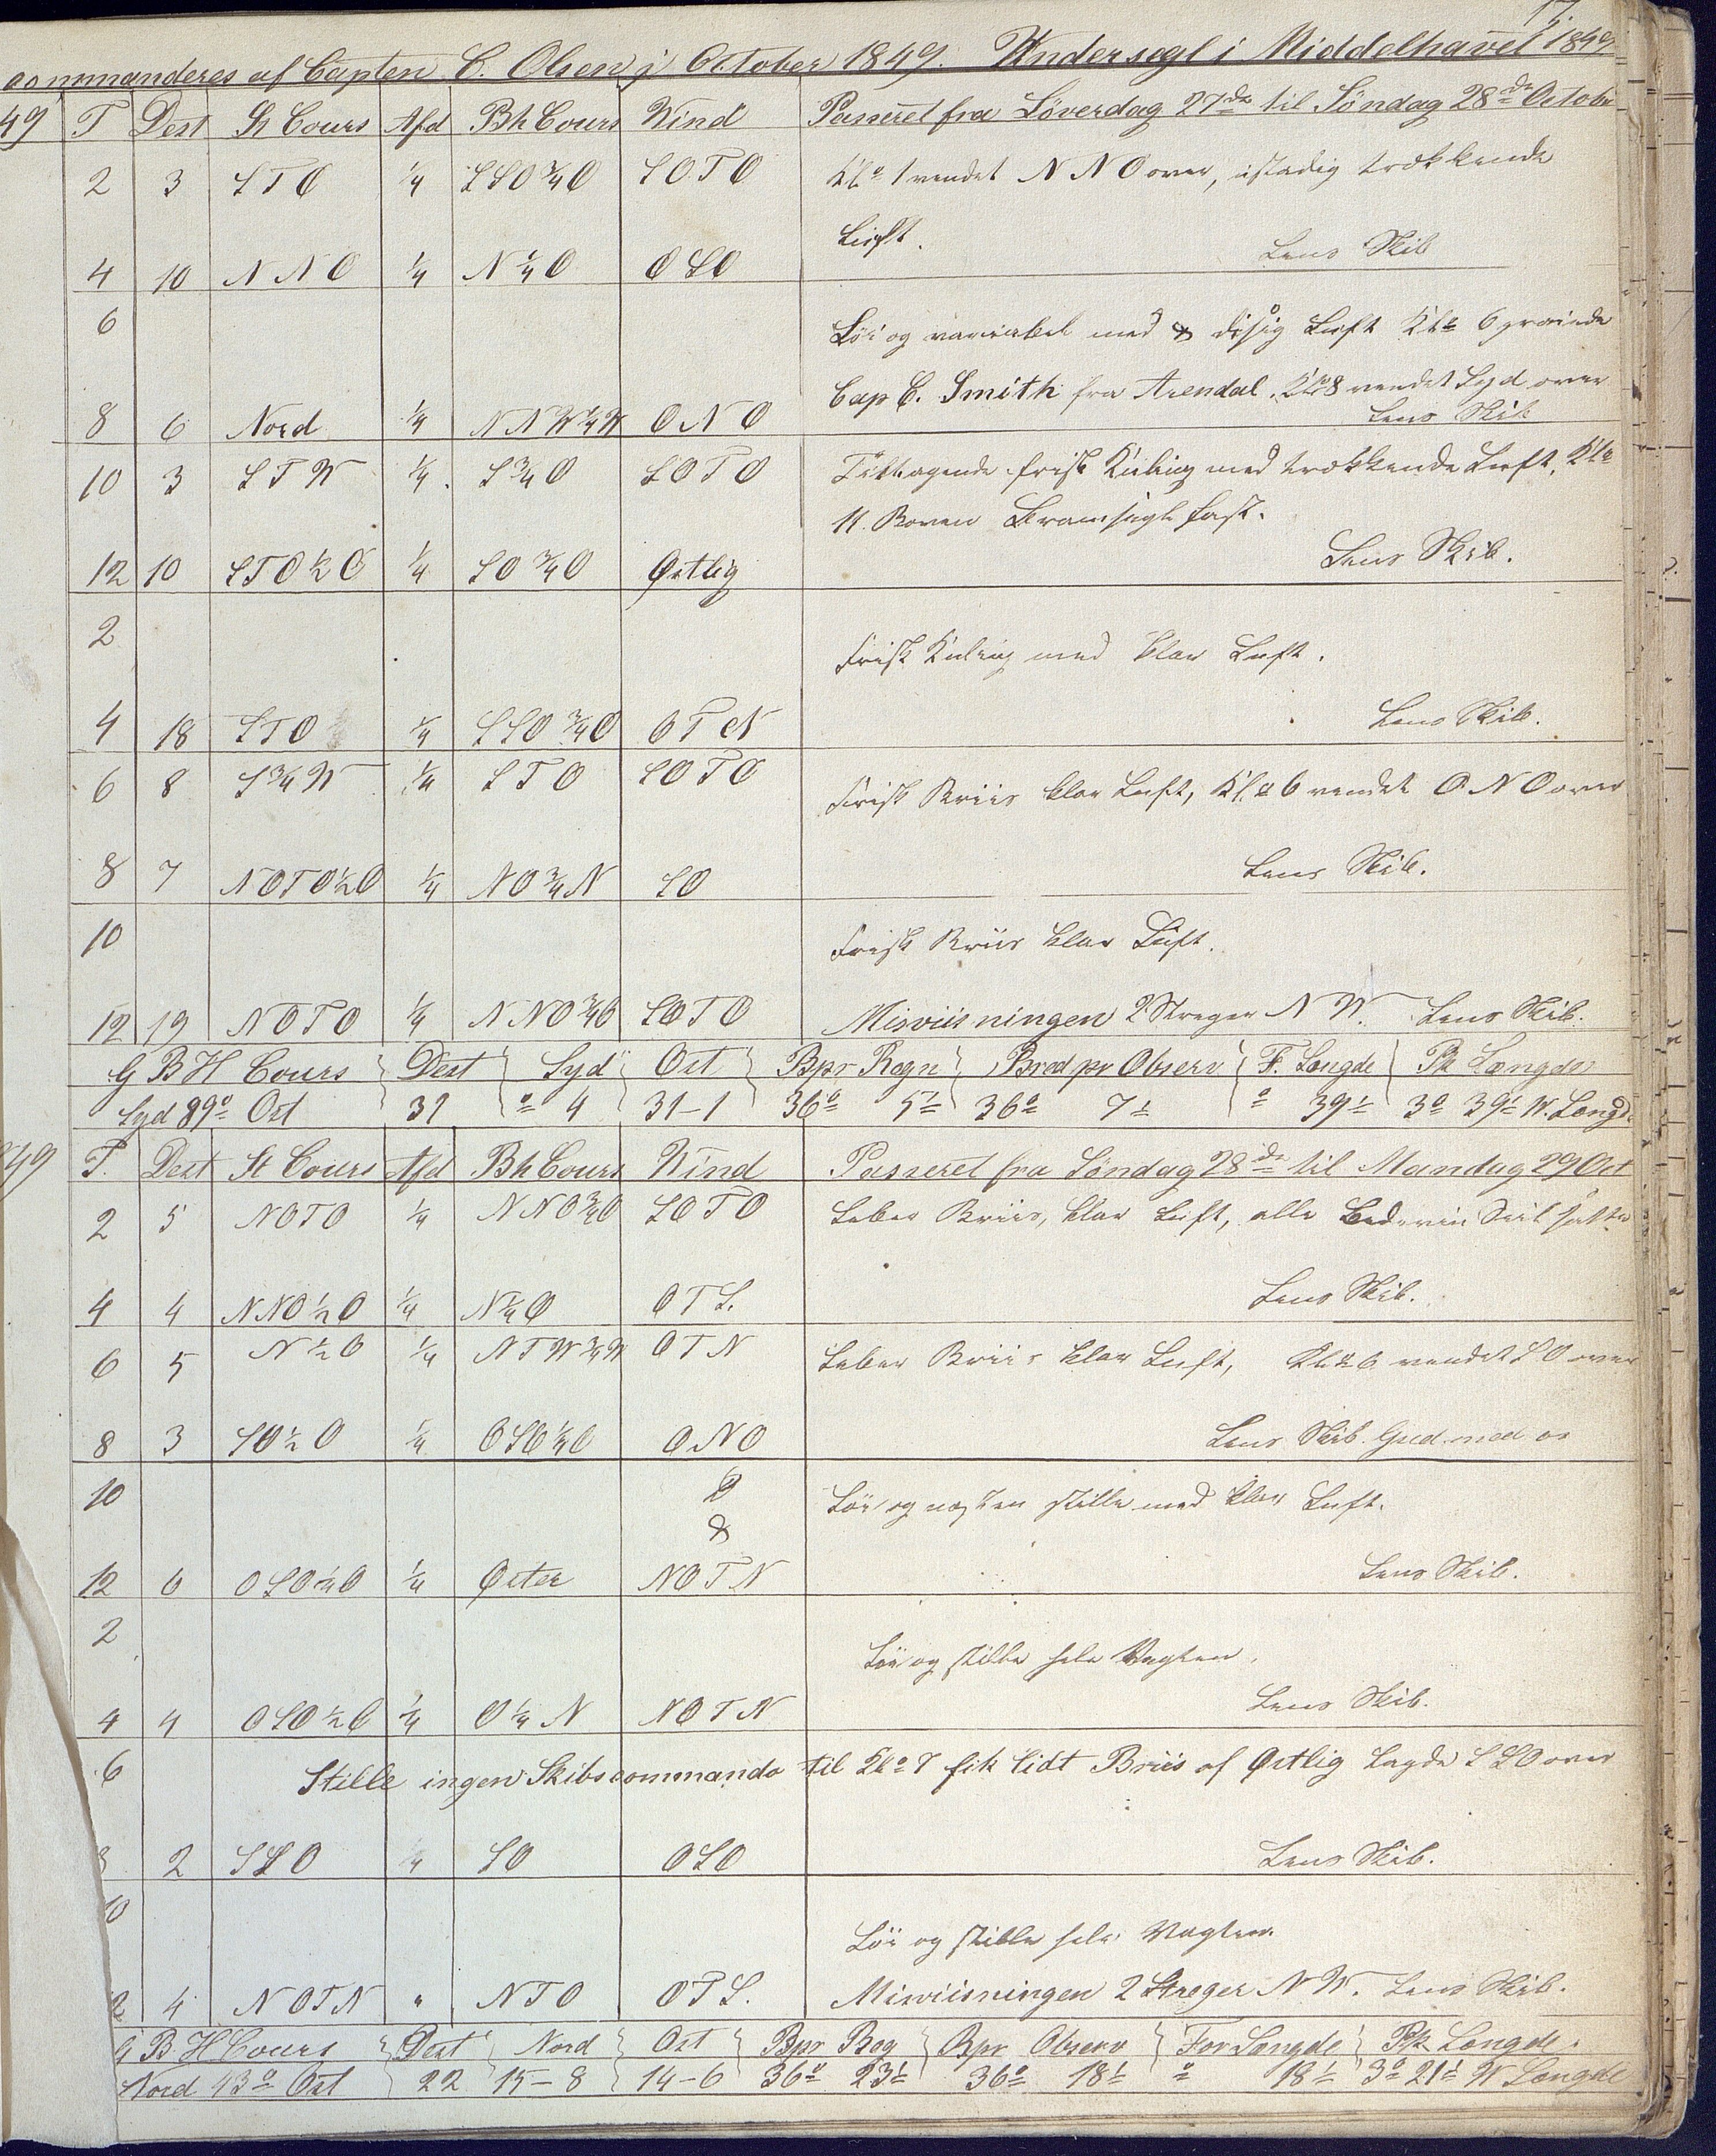 17.
commanderes af Capten C. Olsen i October 1849. Undersegl i Middelhavet 1849
49 T Dest St Cours Afd Bh Cours Wind Passeret fra Löverdag 27de til Söndag 28de Octobr
2 3 STO 1/4 SSO 3/4 O SOTO Kl 1 vendet NNO over, ustadig trækkende
Luft.
4 10 NNO 1/4 N 1/4 O OSO Lens Skib
6 Löi og variabel med & disig Luft Kl 6 praiede
Cap C. Smith fra Arendal. Kl 8 vendet Syd over
8 6 Nord 1/4 NNW 1/4 W ONO Lens Skib
10 3 STW 1/4 S 3/4 O SOTO Tiltagende frisk Kuling med trækkende Luft. Kl
11. Boven Bramseigl fast.
12 10 STO 1/2 O 1/4 SO 3/4 O Østlig Lens Skib.
2 Frisk Kuling med klar Luft.
4 18 STO 1/4 SSO 3/4 O OTN Lens Skib.
6 8 S 3/4 W 1/4 STO SOTO Frisk Briis klar Luft, Kl 6 vendet ONO over
8 7 NOTO 1/2 O 1/4 NO 3/4 N SO Lens Skib.
10 Frisk Briis klar Luft.
12 19 NOTO 1/4 NNO 3/4 O SOTO Misviisningen 2 Streger NW. Lens Skib.
G B H Cours Dest Syd Ost Bpr Regn Bred pr Observ F. Længde Pk Længde
Syd 89° Ost 31 " 4 31-1 36° 5' 36° 7' ° 39' 3° 39' W. Længd
49 T. Dest St Cours Afd Bh Cours Wind Passeret fra Söndag 28de til Mandag 29 Oct
2 5 NOTO 1/4 NNO 3/4 O SOTO Laber Briis, klar Luft, alle Seil satte
4 4 NNO 1/2 O 1/4 N 1/4 O OTS. Lens Skib.
6 5 N 1/2 O 1/4 NTW 3/4 W OTN Laber Briis klar Luft, Kl 6 vendet SO over
8 3 SO 1/2 O 1/4 OSO 1/4 O ONO Lens Skib. Gud med os
10 D Löi og næsten stille med klar Luft.
&
12 6 OSO 1/4 O 1/4 Øster NOTN Lens Skib.
2 Löi og stille hele Vagten.
4 4 OSO 1/2 O 1/4 O 1/4 N NOTN Lens Skib.
6 Stille ingen Skibscommando til Kl 7 fik lidt Briis af Østlig Lagde SSO over
8 2 SSO " SO OSO Lens Skib.
10 Löi og stille hele Vagten.
2 4 NOTN " NTO OTS. Misviisningen 2 Streger NW. Lens Skib.
G B H Cours Dest Nord Ost Bpr Reg Bpr Observ For Længde Pk Længde.
Nord 43° Ost 22 15-8 14-6 36° 23' 36° 18' ° 18' 3° 21' W Længde